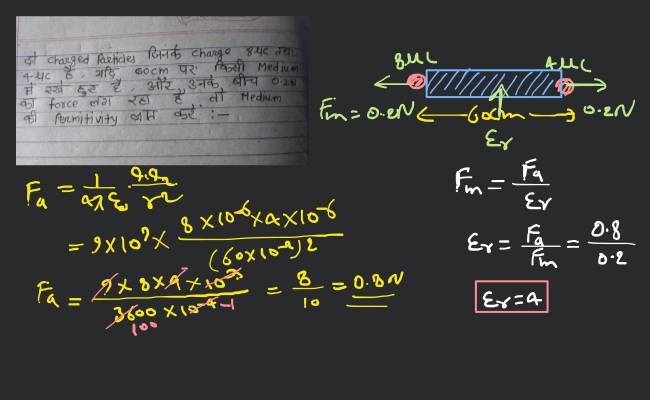 दो charged Particles जिनके charge 8μC तथा
4μC है, यदि 60cm पर किसी Medium
में रखे हुए है, और उनके बीच 0.2N
का force लग रहा है, तो Medium
की Permitivity ज्ञात करें :-
8μC 4μC
Fm = 0.2N 60cm 0.2N
εr
Fa = 1/4πε₀ · q₁q₂/r²
= 9×10⁹ × 8×10⁻⁶×4×10⁻⁶/(60×10⁻²)2
Fa = 9×8×4×10⁻³/3600×10⁻⁴⁻¹ = 8/10 = 0.8N
100
Fm = Fa/εr
εr = Fa/Fm = 0.8/0.2
εr = 4